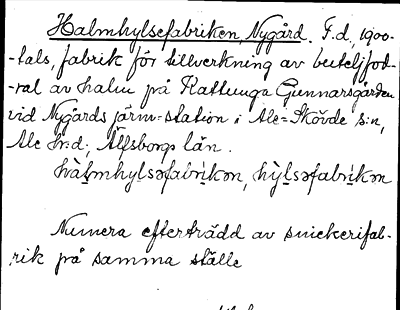 Halmhylsefabriken, Nygård. F.d., 1900-
-tals, fabrik för tillverkning av buteljfod-
-ral av halm på Kattunga Gunnarsgården
vid Nygårds järnv-station i Ale-Skövde s:n,
Ale h:d, Älfsborgs län.
hàlmhylsəfabrìkən, hỳlsəfabrìkən
Numera efterträdd av snickerifab-
rik på samma ställe